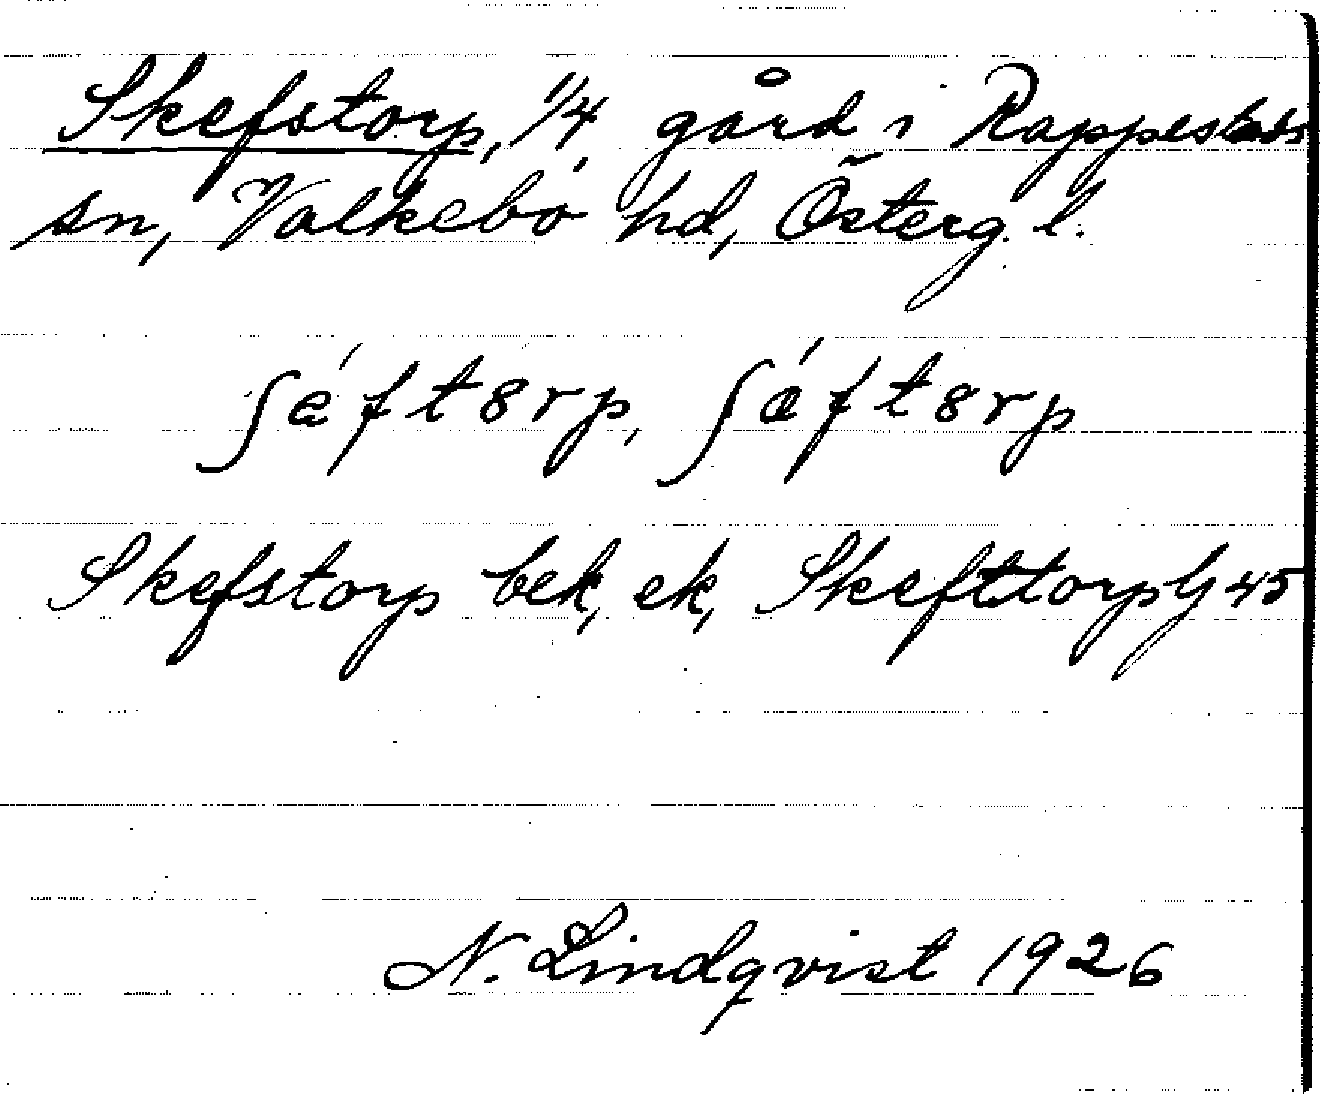 Skefstorp, 1/4 gård i Rappestads
sn, Valkebo hd, Österg. l.
ʃéft8rp, ʃǽft8rp
Skefstorp bek, ek, Skefttorp Gj 45
N. Lindqvist 1926